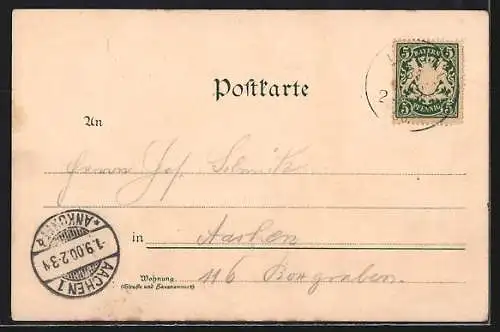 Postkarte
5 BAYERN 5
5 PFENNIG 5
2
An
Herrn Jos.
in Aachen
Wohnung 116
(Straße und Hausnummer)
* ANKUNFT
1.9.00.2-3
AACHEN 1